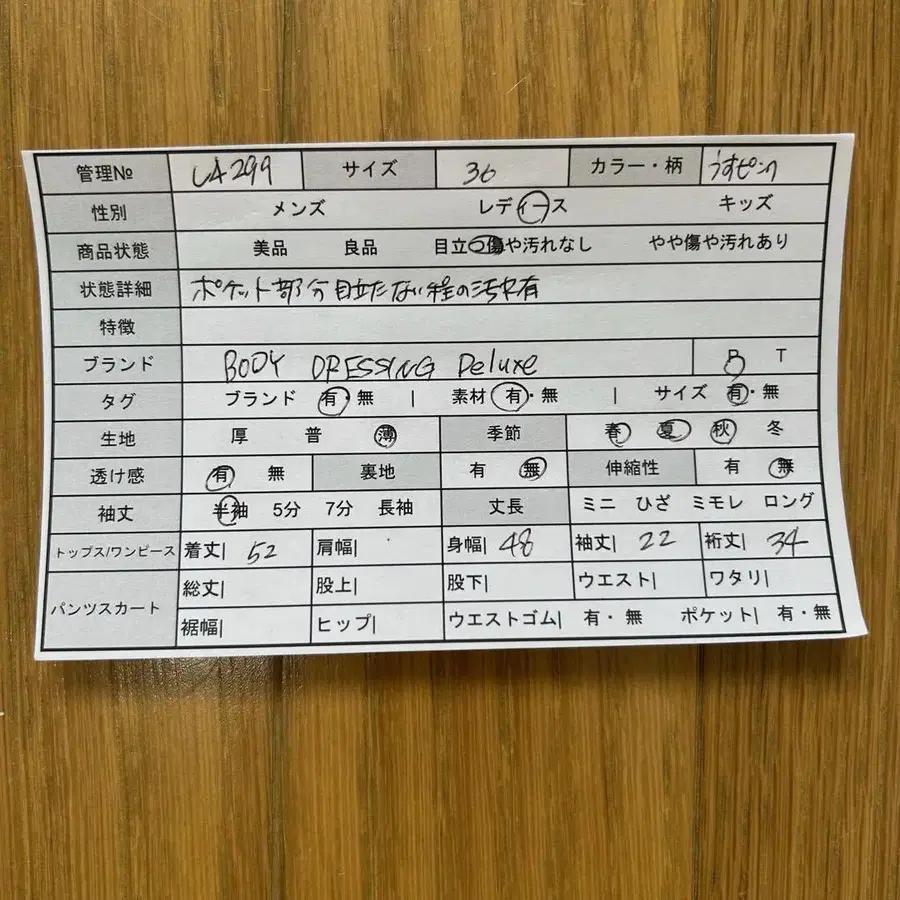 管理№ LA299 サイズ 36 カラー・柄 うすピンク
性別 メンズ レディース キッズ
商品状態 美品 良品 目立つ傷や汚れなし やや傷や汚れあり
状態詳細 ポケット部分目立たない程の汚れ有
特徴
ブランド BODY DRESSING Deluxe B T
タグ ブランド 有・無 | 素材 有・無 | サイズ 有・無
生地 厚 普 薄 季節 春 夏 秋 冬
透け感 有 無 裏地 有 無 伸縮性 有 無
袖丈 半袖 5分 7分 長袖 丈長 ミニ ひざ ミモレ ロング
トップス/ワンピース 着丈| 52 肩幅| 身幅| 48 袖丈| 22 裄丈| 34
パンツスカート 総丈| 股上| 股下| ウエスト| ワタリ|
裾幅| ヒップ| ウエストゴム| 有・無 ポケット| 有・無